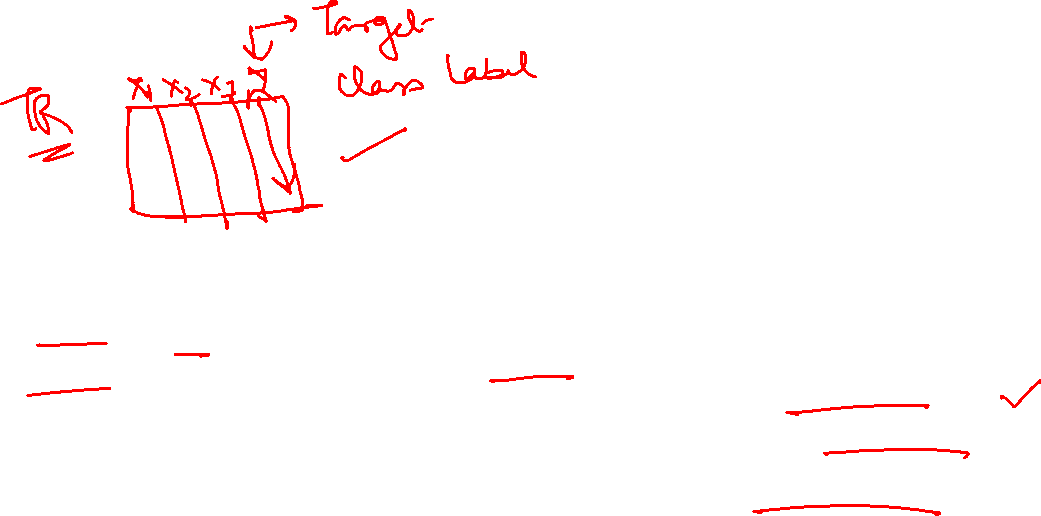 Target
class label
x1 x2 x3
TR